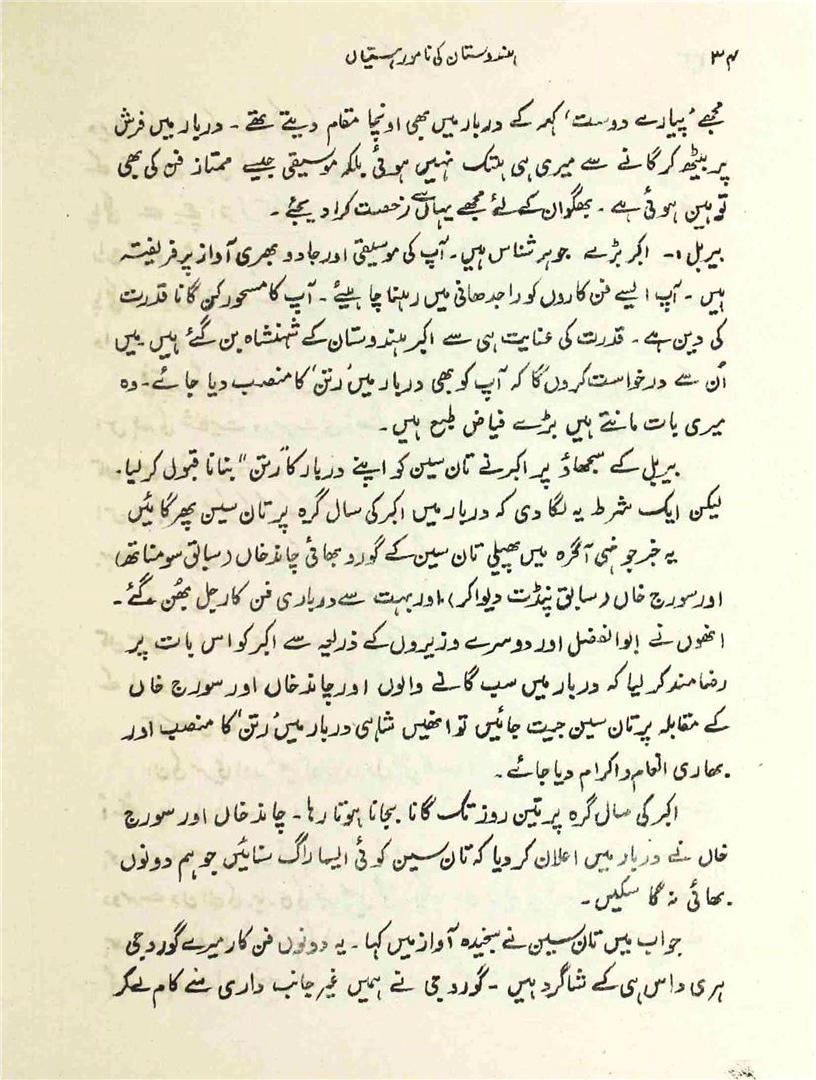 ۳۴ ہندوستان کی نامور ہستیاں
مجھے ’پیارے دوست‘ کہہ کے دربار میں بھی اونچا مقام دیتے تھے۔ دربار میں فرش
پر بیٹھ کر گانے سے میری ہی ہتک نہیں ہوئی بلکہ موسیقی جیسے ممتاز فن کی بھی
توہین ہوئی ہے۔ بھگوان کے لئے مجھے یہاں سے رخصت کرا دیجئے۔
بیربل :- اکبر بڑے جوہر شناس ہیں۔ آپ کی موسیقی اور جادو بھری آواز پر فریفتہ
ہیں۔ آپ ایسے فن کاروں کو راجدھانی میں رہنا چاہیئے۔ آپ کا مسحور کن گانا قدرت
کی دین ہے۔ قدرت کی عنایت ہی سے اکبر ہندوستان کے شہنشاہ بن گئے ہیں میں
اُن سے درخواست کروں گا کہ آپ کو بھی دربار میں ’رتن‘ کا منصب دیا جائے۔ وہ
میری بات مانتے ہیں بڑے فیاض طبع ہیں۔
بیربل کے سجھاؤ پر اکبر نے تان سین کو اپنے دربار کا ”رتن“ بنانا قبول کر لیا۔
لیکن ایک شرط یہ لگا دی کہ دربار میں اکبر کی سال گرہ پر تان سین پھر گائیں
یہ خبر جو نہی آگرہ میں پھیلی تان سین کے گورو بھائی چاند خاں (سابق سومناتھ)
اور سورج خاں (سابق پنڈت دیواکر) اور بہت سے درباری فن کار جل بھُن گئے۔
انھوں نے ابوالفضل اور دوسرے وزیروں کے ذریعہ سے اکبر کو اس بات پر
رضامند کر لیا کہ دربار میں سب گانے والوں اور چاند خاں اور سورج خاں
کے مقابلہ پر تان سین جیت جائیں تو انھیں شاہی دربار میں ’رتن‘ کا منصب اور
بھاری انعام و اکرام دیا جائے۔
اکبر کی سال گرہ پر تین روز تک گانا بجانا ہوتا رہا۔ چاند خاں اور سورج
خاں نے دربار میں اعلان کر دیا کہ تان سین کوئی ایسا راگ سنائیں جو ہم دونوں
بھائی نہ گا سکیں۔
جواب میں تان سین نے سنجیدہ آواز میں کہا۔ یہ دونوں فن کار میرے گورو جی
ہری داس ہی کے شاگرد ہیں۔ گورو جی نے ہمیں غیر جانب داری سے کام لے کر